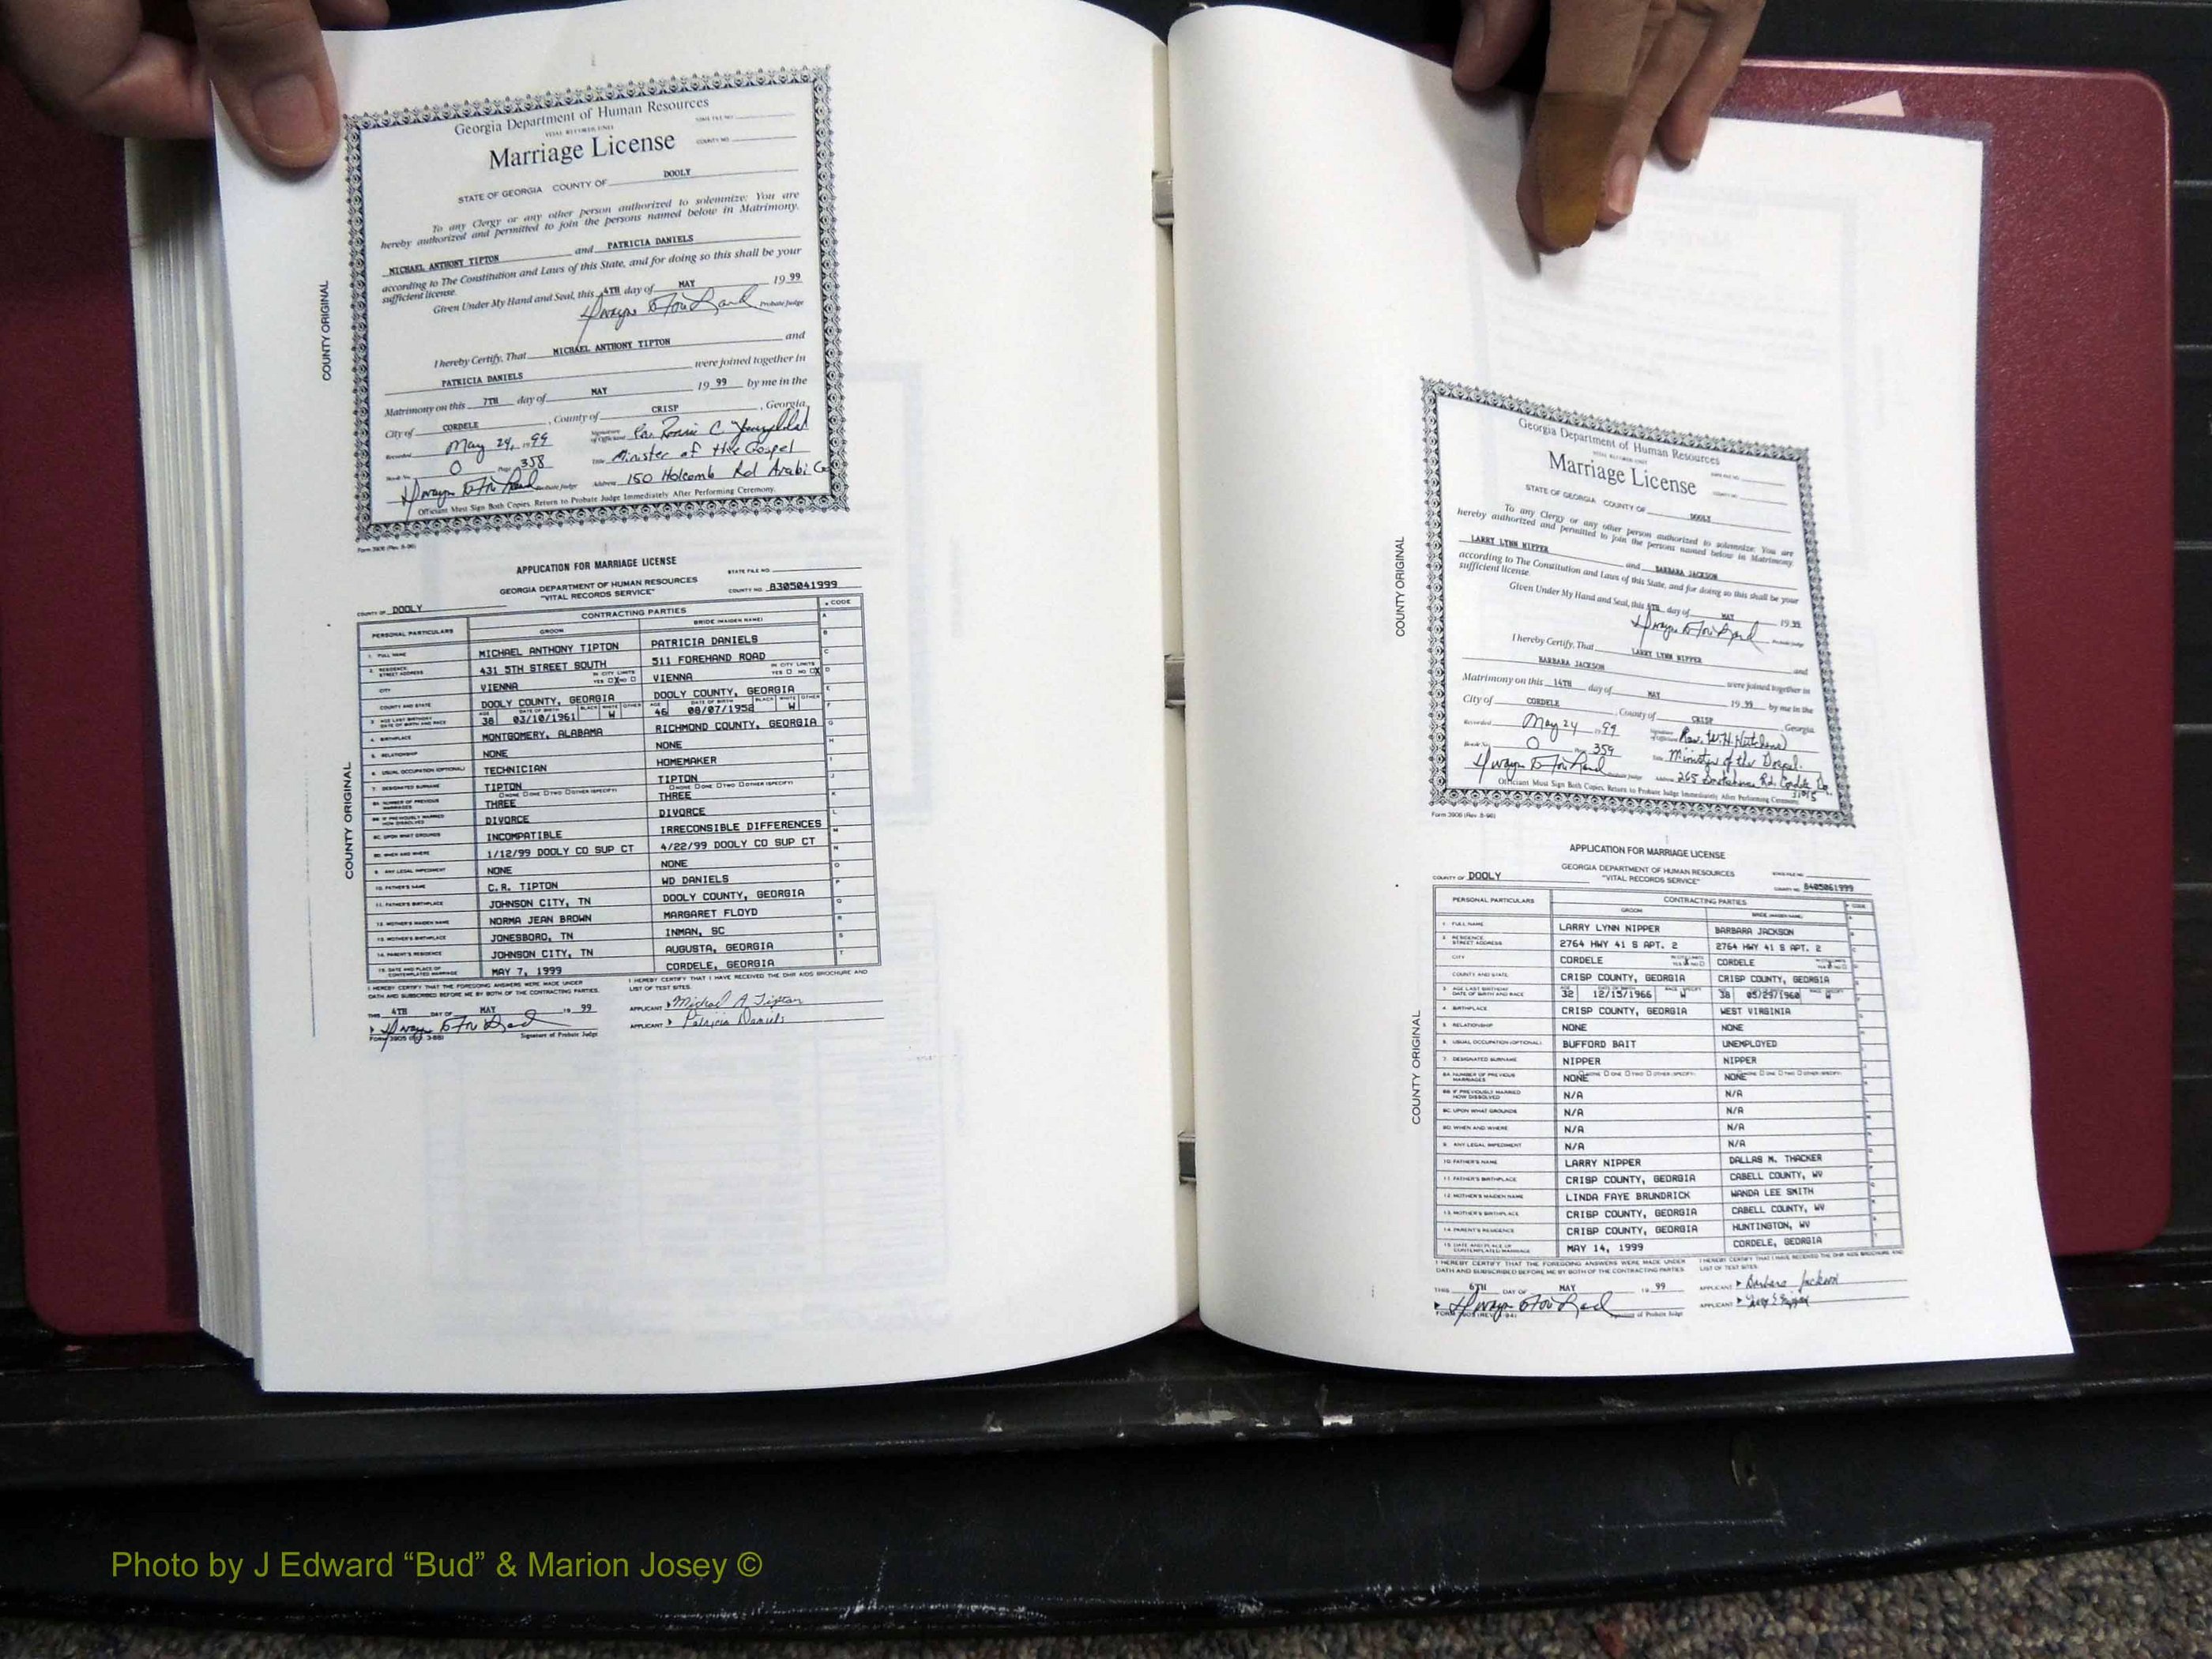 Georgia Department of Human Resources
VITAL RECORDS UNIT
STATE FILE NO.
Marriage License
COUNTY NO.
STATE OF GEORGIA COUNTY OF DOOLY
To any Clergy or any other person authorized to solemnize: You are
hereby authorized and permitted to join the persons named below in Matrimony.
MICHAEL ANTHONY TIPTON and PATRICIA DANIELS
according to The Constitution and Laws of this State, and for doing so this shall be your
sufficient license.
Given Under My Hand and Seal, this 4TH day of MAY 19 99
Probate Judge
I hereby Certify, That MICHAEL ANTHONY TIPTON and
PATRICIA DANIELS were joined together in
Matrimony on this 7TH day of MAY 19 99 by me in the
City of CORDELE, County of CRISP, Georgia
Recorded May 24, 1999 Signature of Officiant
Book No. O Page 358 Title Minister of the Gospel
Probate Judge Address 150 Holcomb Rd Arabi Ga
Officiant Must Sign Both Copies. Return to Probate Judge Immediately After Performing Ceremony.
Form 3906 (Rev. 8-96)
COUNTY ORIGINAL
APPLICATION FOR MARRIAGE LICENSE
GEORGIA DEPARTMENT OF HUMAN RESOURCES
"VITAL RECORDS SERVICE"
STATE FILE NO.
COUNTY OF DOOLY COUNTY NO. 8305041999
PERSONAL PARTICULARS CONTRACTING PARTIES CODE
GROOM BRIDE (MAIDEN NAME)
1. FULL NAME MICHAEL ANTHONY TIPTON PATRICIA DANIELS
2. RESIDENCE: STREET ADDRESS 431 5TH STREET SOUTH 511 FOREHAND ROAD
CITY VIENNA IN CITY LIMITS YES NO VIENNA IN CITY LIMITS YES NO
COUNTY AND STATE DOOLY COUNTY, GEORGIA DOOLY COUNTY, GEORGIA
3. AGE LAST BIRTHDAY DATE OF BIRTH AND RACE 38 03/10/1961 W 46 08/07/1952 W
4. BIRTHPLACE MONTGOMERY, ALABAMA RICHMOND COUNTY, GEORGIA
5. RELATIONSHIP NONE NONE
6. USUAL OCCUPATION (OPTIONAL) TECHNICIAN HOMEMAKER
7. DESIGNATED SURNAME TIPTON TIPTON
8A. NUMBER OF PREVIOUS MARRIAGES THREE THREE
8B. IF PREVIOUSLY MARRIED HOW DISSOLVED DIVORCE DIVORCE
8C. UPON WHAT GROUNDS INCOMPATIBLE IRRECONSIBLE DIFFERENCES
8D. WHEN AND WHERE 1/12/99 DOOLY CO SUP CT 4/22/99 DOOLY CO SUP CT
9. ANY LEGAL IMPEDIMENT NONE NONE
10. FATHER'S NAME C.R. TIPTON WD DANIELS
11. FATHER'S BIRTHPLACE JOHNSON CITY, TN DOOLY COUNTY, GEORGIA
12. MOTHER'S MAIDEN NAME NORMA JEAN BROWN MARGARET FLOYD
13. MOTHER'S BIRTHPLACE JONESBORO, TN INMAN, SC
14. PARENT'S RESIDENCE JOHNSON CITY, TN AUGUSTA, GEORGIA
15. DATE AND PLACE OF CONTEMPLATED MARRIAGE MAY 7, 1999 CORDELE, GEORGIA
I HEREBY CERTIFY THAT THE FOREGOING ANSWERS WERE MADE UNDER
OATH AND SUBSCRIBED BEFORE ME BY BOTH OF THE CONTRACTING PARTIES.
I HEREBY CERTIFY THAT I HAVE RECEIVED THE DHR AIDS BROCHURE AND
LIST OF TEST SITES.
THIS 4TH DAY OF MAY 19 99 APPLICANT Michael A Tipton
APPLICANT Patricia Daniels
Signature of Probate Judge
COUNTY ORIGINAL
Georgia Department of Human Resources
VITAL RECORDS UNIT
STATE FILE NO.
Marriage License
COUNTY NO.
STATE OF GEORGIA COUNTY OF DOOLY
To any Clergy or any other person authorized to solemnize: You are
hereby authorized and permitted to join the persons named below in Matrimony.
LARRY LYNN NIPPER and BARBARA JACKSON
according to The Constitution and Laws of this State, and for doing so this shall be your
sufficient license.
Given Under My Hand and Seal, this 6TH day of MAY 19 99
Probate Judge
I hereby Certify, That LARRY LYNN NIPPER and
BARBARA JACKSON were joined together in
Matrimony on this 14TH day of MAY 19 99 by me in the
City of CORDELE, County of CRISP, Georgia
Recorded May 24 1999 Signature of Officiant Rev. W.H. Hutchens
Book No. O Page 359 Title Minister of the Gospel.
Probate Judge Address 265 Rd. Cordele Ga
31015
Officiant Must Sign Both Copies. Return to Probate Judge Immediately After Performing Ceremony.
Form 3906 (Rev. 8-96)
COUNTY ORIGINAL
APPLICATION FOR MARRIAGE LICENSE
GEORGIA DEPARTMENT OF HUMAN RESOURCES
"VITAL RECORDS SERVICE"
STATE FILE NO.
COUNTY OF DOOLY COUNTY NO. 8405061999
PERSONAL PARTICULARS CONTRACTING PARTIES CODE
GROOM BRIDE (MAIDEN NAME)
1. FULL NAME LARRY LYNN NIPPER BARBARA JACKSON
2. RESIDENCE STREET ADDRESS 2764 HWY 41 S APT. 2 2764 HWY 41 S APT. 2
CITY CORDELE CORDELE
COUNTY AND STATE CRISP COUNTY, GEORGIA CRISP COUNTY, GEORGIA
3. AGE LAST BIRTHDAY DATE OF BIRTH AND RACE 32 12/15/1966 W 38 05/29/1960 W
4. BIRTHPLACE CRISP COUNTY, GEORGIA WEST VIRGINIA
5. RELATIONSHIP NONE NONE
6. USUAL OCCUPATION (OPTIONAL) BUFFORD BAIT UNEMPLOYED
7. DESIGNATED SURNAME NIPPER NIPPER
8A. NUMBER OF PREVIOUS MARRIAGES NONE NONE
8B. IF PREVIOUSLY MARRIED HOW DISSOLVED N/A N/A
8C. UPON WHAT GROUNDS N/A N/A
8D. WHEN AND WHERE N/A N/A
9. ANY LEGAL IMPEDIMENT N/A N/A
10. FATHER'S NAME LARRY NIPPER DALLAS M. THACKER
11. FATHER'S BIRTHPLACE CRISP COUNTY, GEORGIA CABELL COUNTY, WV
12. MOTHER'S MAIDEN NAME LINDA FAYE BRUNDRICK WANDA LEE SMITH
13. MOTHER'S BIRTHPLACE CRISP COUNTY, GEORGIA CABELL COUNTY, WV
14. PARENT'S RESIDENCE CRISP COUNTY, GEORGIA HUNTINGTON, WV
15. DATE AND PLACE OF CONTEMPLATED MARRIAGE MAY 14, 1999 CORDELE, GEORGIA
I HEREBY CERTIFY THAT THE FOREGOING ANSWERS WERE MADE UNDER
OATH AND SUBSCRIBED BEFORE ME BY BOTH OF THE CONTRACTING PARTIES.
I HEREBY CERTIFY THAT I HAVE RECEIVED THE DHR AIDS BROCHURE AND
LIST OF TEST SITES.
THIS 6TH DAY OF MAY 19 99 APPLICANT Barbara Jackson
APPLICANT
Signature of Probate Judge
COUNTY ORIGINAL
Photo by J Edward “Bud” & Marion Josey ©